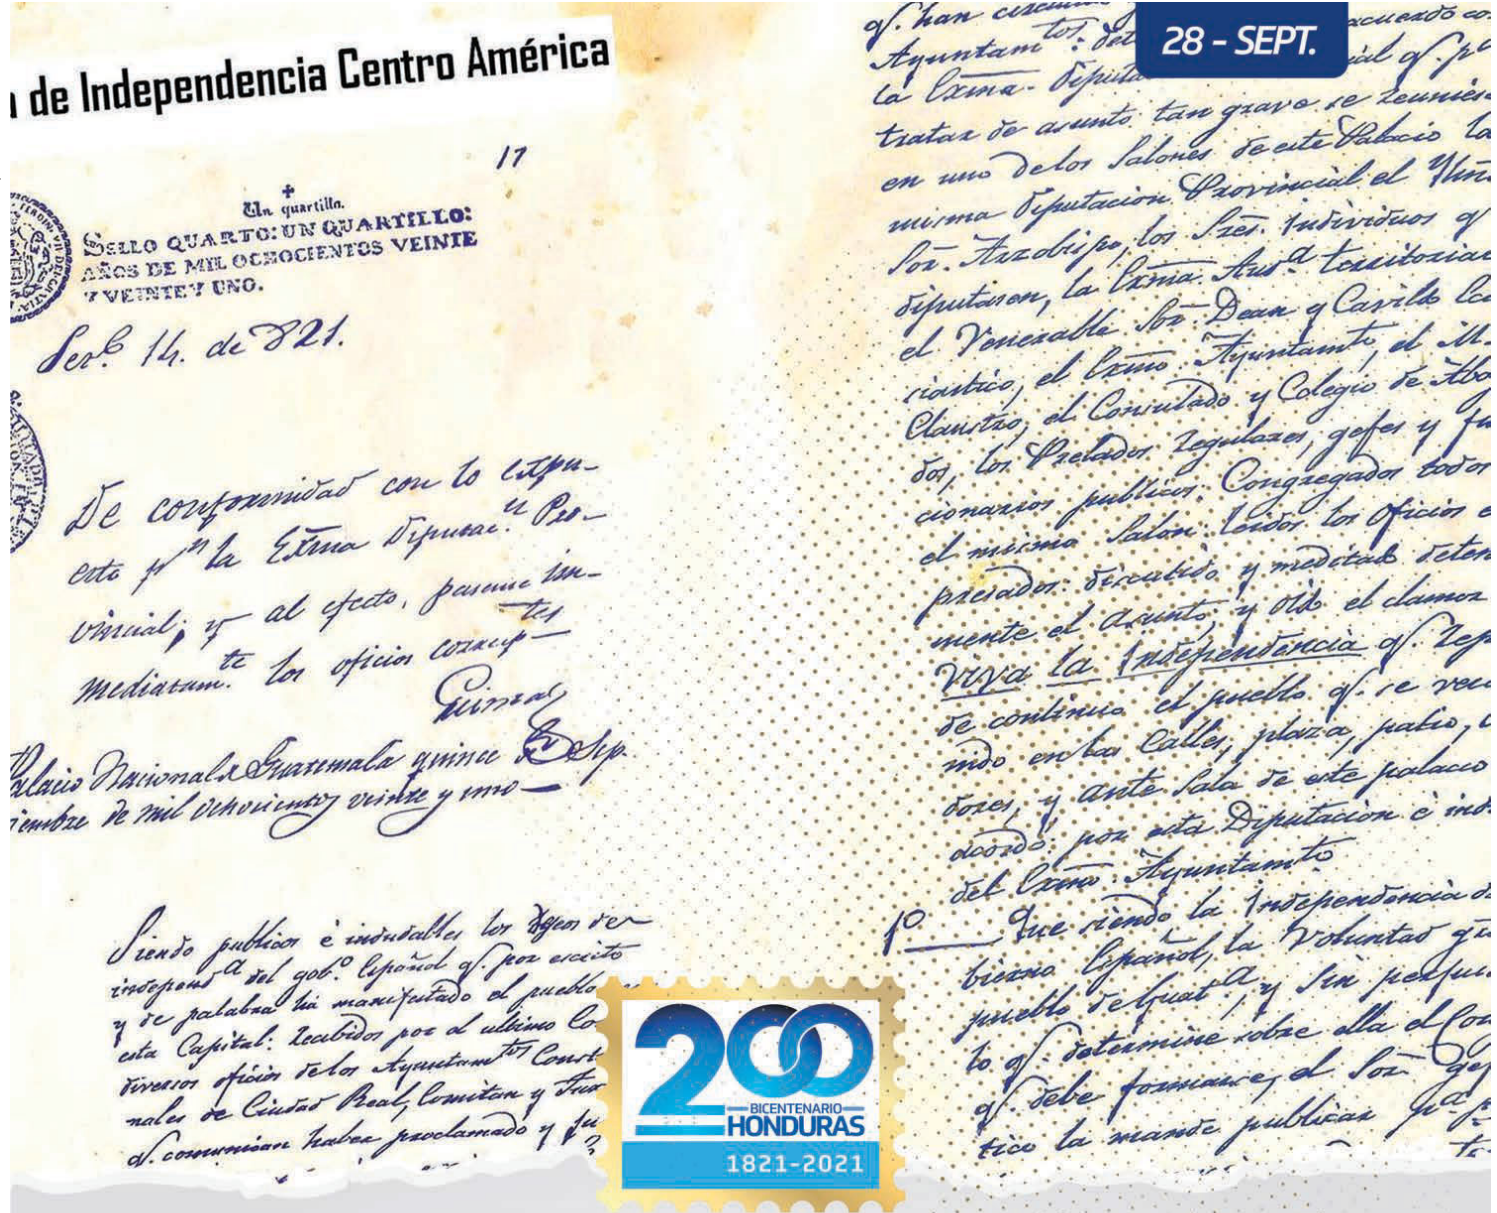 de Independencia Centro América
28 - SEPT.
17
Un quartillo.
SELLO QUARTO: UN QUARTILLO:
AÑOS DE MIL OCHOCIENTOS VEINTE
Y VEINTE Y UNO.
14. de 821.
De conformidad con lo expu-
esto pʳ la Exma Diputacⁿ Pro-
vincial; y al efecto, pasense in-
mediatamᵗᵉ los oficios
Palacio Nacional de Guatemala quince de Sep.
iembre de mil ochocientos veinte y uno
Siendo publicos è indudables los deseos de
independᵃ del gobᵒ Español q. por escrito
y de palabra ha manifestado el pueblo
esta Capital: recibidos por el ultimo Co
diversos oficios de los Ayuntamᵗᵒˢ Const
nales de Ciudad Real, Comitan y Tux
q. comunican haber proclamado y ju
q. han
acuerdo co
Ayuntamᵗᵒˢ: det
ial q. pᵃ
la Exma. Diputa
tratar de asunto tan grave se reunies
en uno de los Salones de este Palacio la
misma Diputacion Provincial el Yllm
Sor. Arzobispo, los Sres. Individuos q
diputasen, la Exma. Audᵃ territorial
el Venerable Sor. Dean y Cavildo Ecc
siastico, el Exmo. Ayuntamto, el M.
Claustro, el Consulado y Colegio de Abo
dos, los Prelados regulares, gefes y fu
cionarios publicos. Congregados todos
el mismo Salon: leidos los oficios e
presados: discutido y meditado deten
mente el asunto, y oido el clamor
VIVA la Independencia q. rep
de continuo el pueblo q. se veia
nido en las Calles, plaza, patio, c
dores, y ante Sala de este palacio
acordó: por esta Diputacion è indi
del Exmo. Ayuntamto
1º Que siendo la Independencia de
bierno Español, la Voluntad gral
pueblo de Guatᵃ, y Sin perjui
lo q. determine sobre ella el Con
q. debe formarse, el Sor. Gef
tico la mande publicar pᵃ p
200
BICENTENARIO
HONDURAS
1821-2021